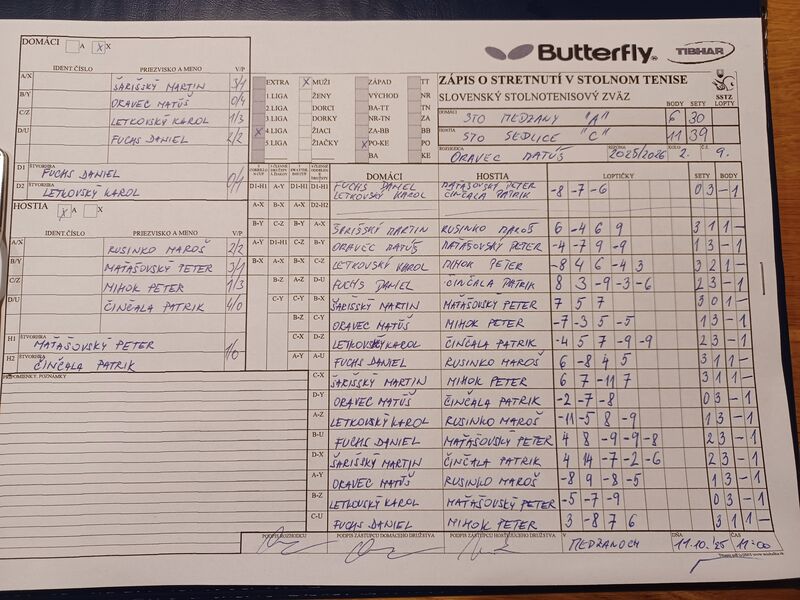 DOMÁCI A X X
IDENT ČÍSLO PRIEZVISKO A MENO V/P
A/X ŠARIŠSKÝ MARTIN 3/1
B/Y ORAVEC MATÚŠ 0/4
C/Z LETKOVSKÝ KAROL 1/3
D/U FUCHS DANIEL 2/2
D1 ŠTVORHRA FUCHS DANIEL
D2 LETKOVSKÝ KAROL 0/1
HOSTIA X A X
IDENT ČÍSLO PRIEZVISKO A MENO V/P
A/X RUSINKO MAROŠ 2/2
B/Y MAŤAŠOVSKÝ PETER 3/1
C/Z MIHOK PETER 1/3
D/U ČINČALA PATRIK 4/0
H1 ŠTVORHRA MAŤAŠOVSKÝ PETER
H2 ŠTVORHRA ČINČALA PATRIK 1/0
PRIPOMIENKY, POZNÁMKY
Butterfly TIBHAR
EXTRA X MUŽI ZÁPAD TT
1.LIGA ŽENY VÝCHOD NR
2.LIGA DORCI BA-TT TN
3.LIGA DORKY NR-TN ZA
X 4.LIGA ŽIACI ZA-BB BB
5.LIGA ŽIAČKY X PO-KE PO
BA KE
ZÁPIS O STRETNUTÍ V STOLNOM TENISE
SLOVENSKÝ STOLNOTENISOVÝ ZVÄZ
SSTZ
BODY SETY LOPTY
DOMÁCI STO MEDZANY "A" 6 30
HOSTIA STO SEDLICE "C" 11 39
ROZHODCA ORAVEC MATÚŠ SEZÓNA 2025/2026 KOLO 2. Č. 9.
DOMÁCI HOSTIA LOPTIČKY SETY BODY
D1-H1 A-Y D1-H1 D1-H1 FUCHS DANIEL LETKOVSKÝ KAROL MAŤAŠOVSKÝ PETER ČINČALA PATRIK -8 -7 -6 0 3 - 1
A-X B-X A-X D2-H2
A-X ŠARIŠSKÝ MARTIN RUSINKO MAROŠ 6 -4 6 9 3 1 1 -
A-Y D1-H1 C-Z B-Y ORAVEC MATÚŠ MAŤAŠOVSKÝ PETER -4 -7 9 -9 1 3 - 1
B-X A-X A-Y C-Z LETKOVSKÝ KAROL MIHOK PETER -8 4 6 -4 3 3 2 1 -
B-Z A-Z D-U FUCHS DANIEL ČINČALA PATRIK 8 3 -9 -3 -6 2 3 - 1
C-Y C-X B-X ŠARIŠSKÝ MARTIN MAŤAŠOVSKÝ PETER 7 5 7 3 0 1 -
B-Z C-Y ORAVEC MATÚŠ MIHOK PETER -7 -3 5 -5 1 3 - 1
C-X D-Z LETKOVSKÝ KAROL ČINČALA PATRIK -4 5 7 -9 -9 2 3 - 1
A-Y A-U FUCHS DANIEL RUSINKO MAROŠ 6 -8 4 5 3 1 1 -
C-X ŠARIŠSKÝ MARTIN MIHOK PETER 6 7 -11 7 3 1 1 -
D-Y ORAVEC MATÚŠ ČINČALA PATRIK -2 -7 -8 0 3 - 1
A-Z LETKOVSKÝ KAROL RUSINKO MAROŠ -11 -5 8 -9 1 3 - 1
B-U FUCHS DANIEL MAŤAŠOVSKÝ PETER 4 8 -9 -9 -8 2 3 - 1
D-X ŠARIŠSKÝ MARTIN ČINČALA PATRIK 4 14 -7 -2 -6 2 3 - 1
A-Y ORAVEC MATÚŠ RUSINKO MAROŠ -8 9 -8 -5 1 3 - 1
B-Z LETKOVSKÝ KAROL MAŤAŠOVSKÝ PETER -5 -7 -9 0 3 - 1
C-U FUCHS DANIEL MIHOK PETER 3 -8 7 6 3 1 1 -
PODPIS ROZHODCU PODPIS ZÁSTUPCU DOMÁCEHO DRUŽSTVA PODPIS ZÁSTUPCU HOSŤUJÚCEHO DRUŽSTVA V MEDZANOCH DŇA 11.10.25 ČAS 11:00